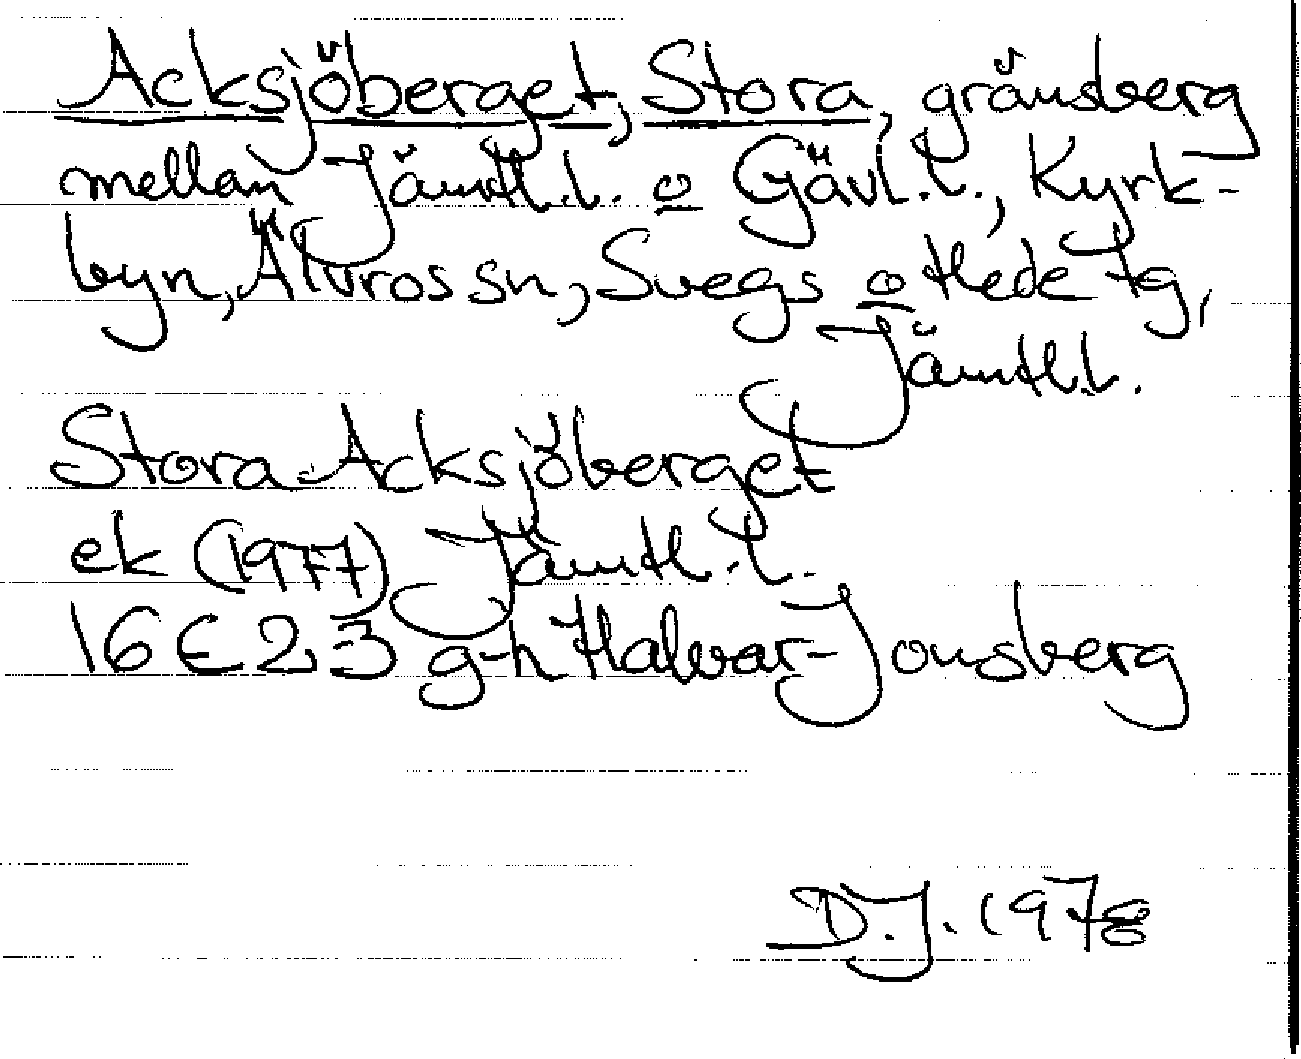 Acksjöberget, Stora, gränsberg
mellan Jämtl.l. o Gävl.l., Kyrk-
byn, Älvros sn, Svegs o Hede tg,
Jämtl.l.
Stora Acksjöberget
ek (1977) Jämtl.l.
16E23 g-h Halvar-Jonsberg
D.J. 1978